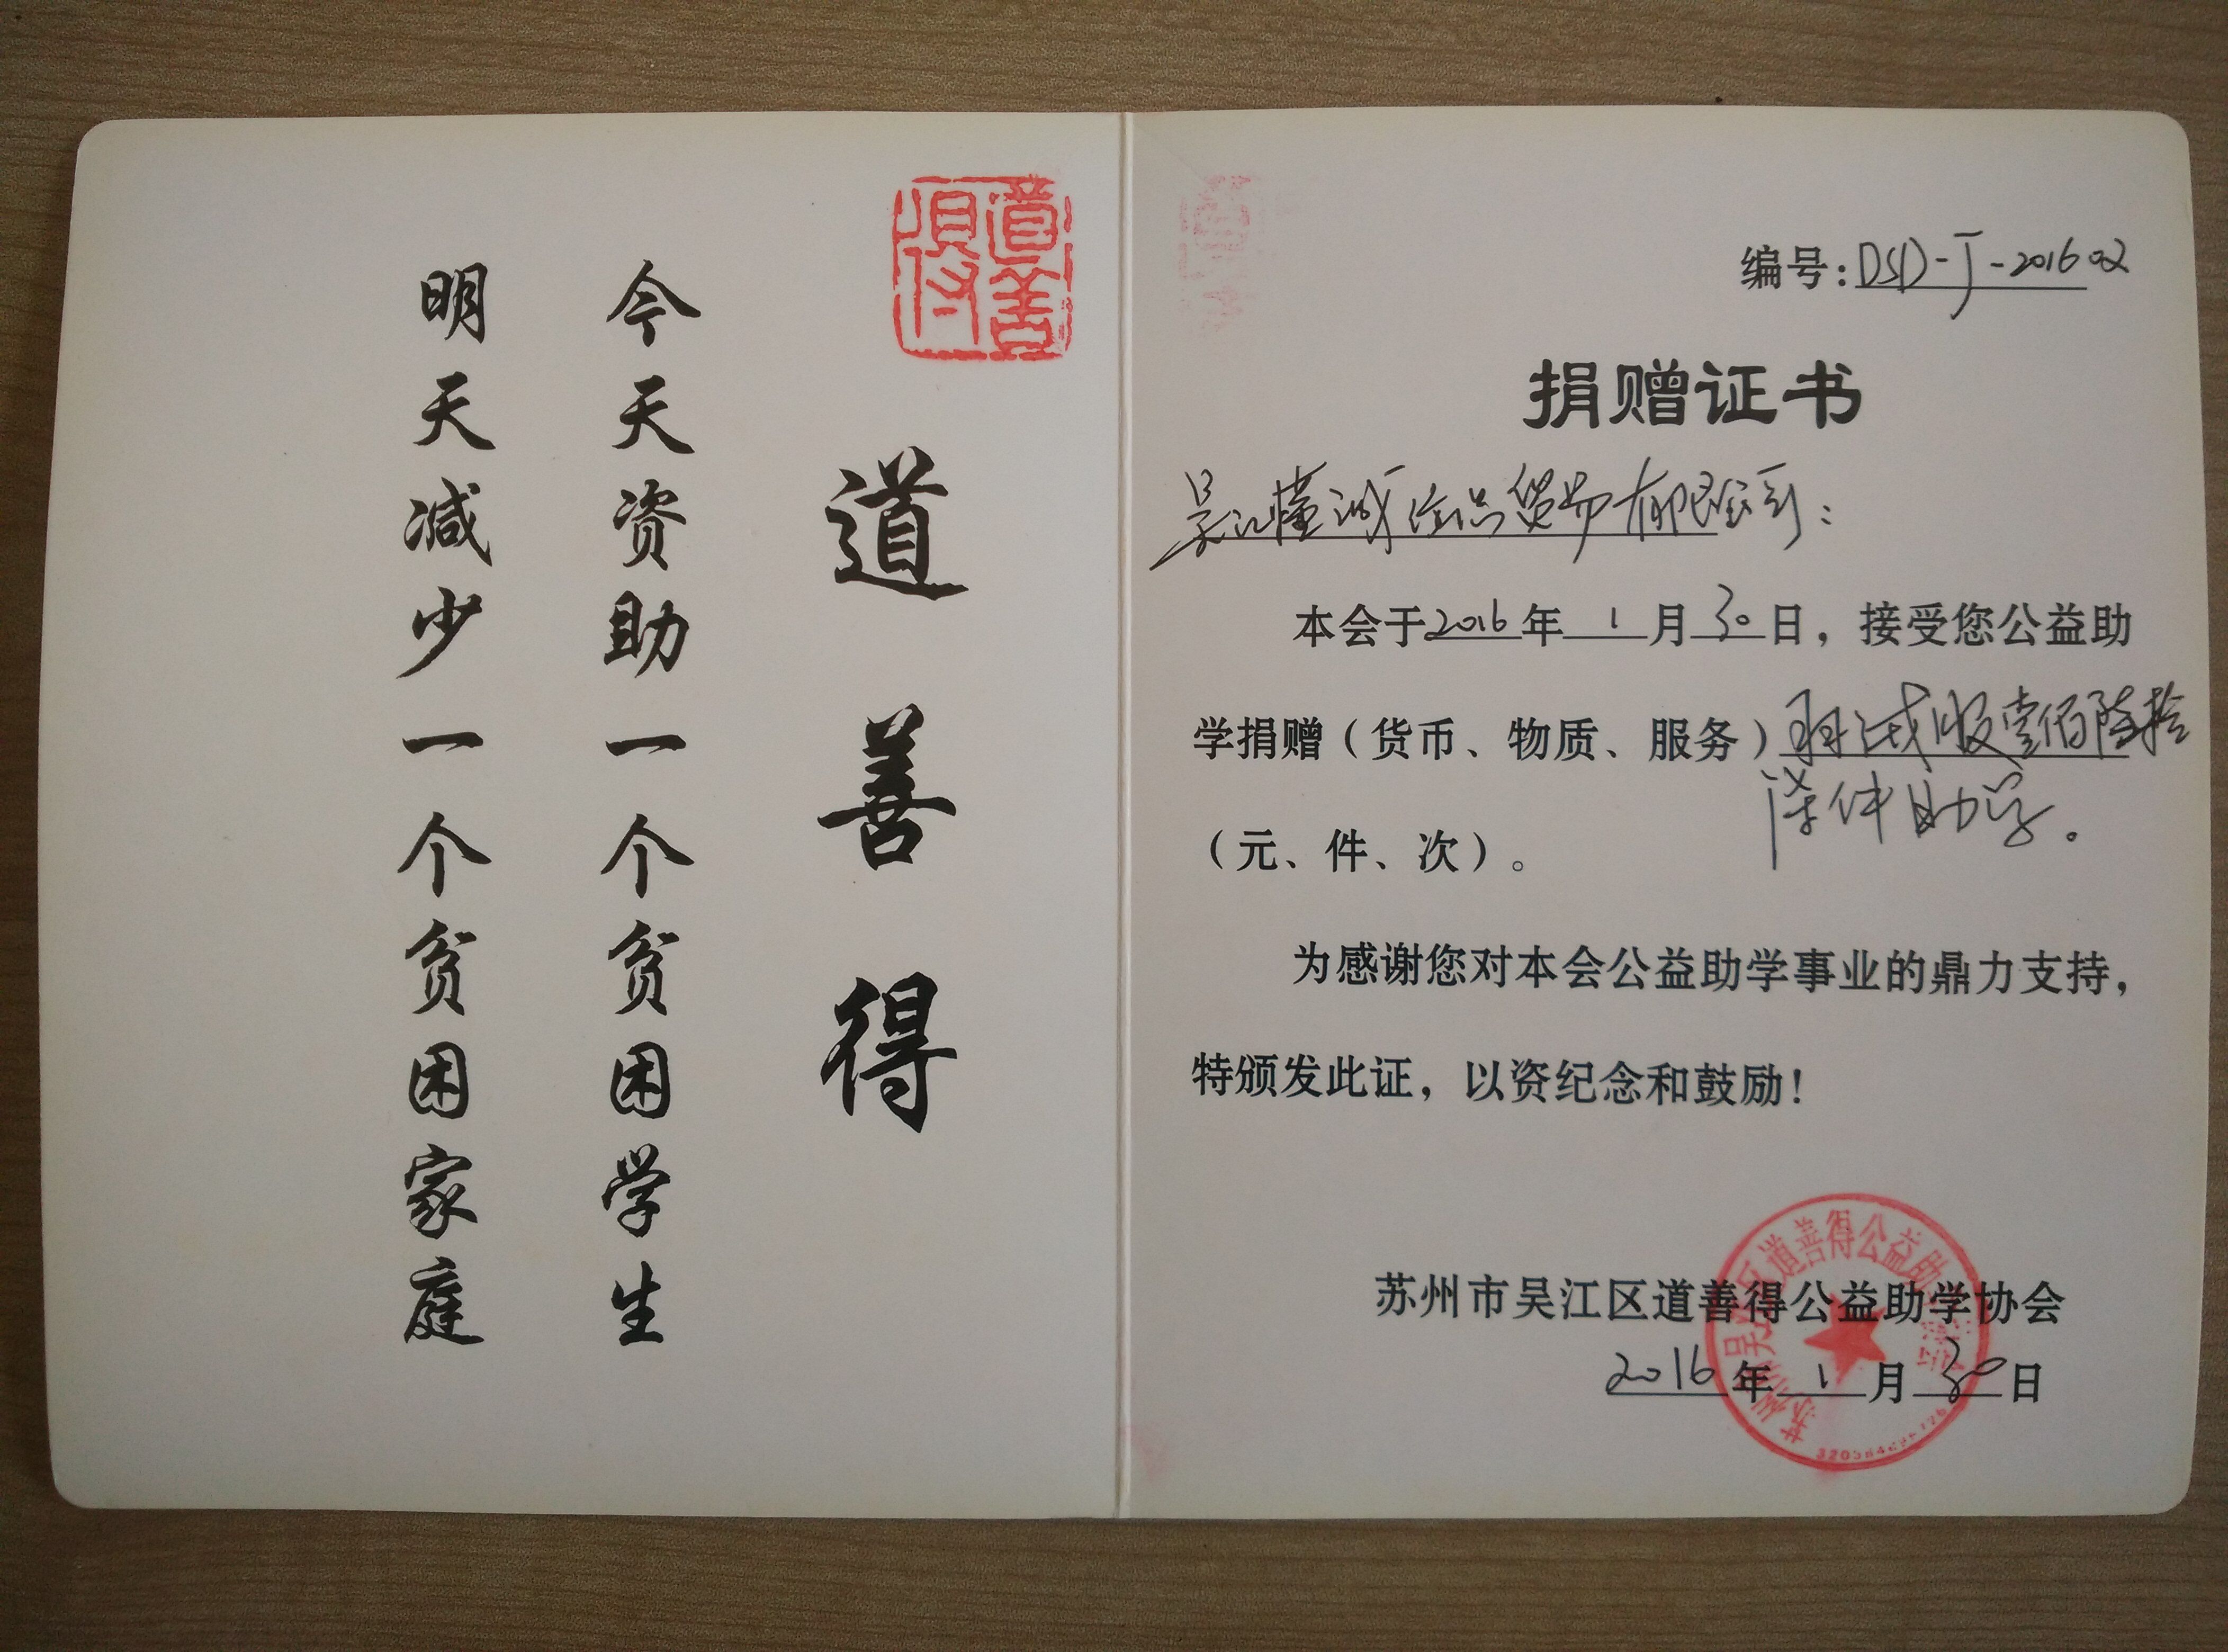 道善得
道善得
今天资助一个贫困学生
明天减少一个贫困家庭
编号:DSD-J-201602
捐赠证书
吴江 诚 品贸易有限公司:
本会于2016年1月30日，接受您公益助
学捐赠（货币、物质、服务）羽绒服壹佰陆拾
件助学。
（元、件、次）。
为感谢您对本会公益助学事业的鼎力支持，
特颁发此证，以资纪念和鼓励！
苏州市吴江区道善得公益助学协会
2016年1月30日
苏州市吴江区道善得公益助学协会